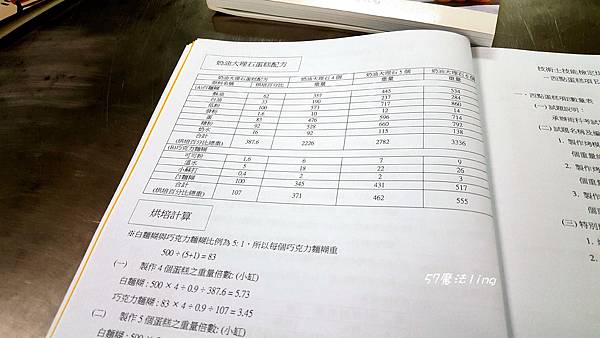 奶油大理石蛋糕配方
奶油大理石蛋糕配方 奶油大理石4個 奶油大理石5個 奶油大理石6個
原料名稱 烘焙百分比 重量 重量 重量
(A)白麵糊
酥油 62 357 445 534
白油 33 190 237 284
低粉 100 573 717 860
發粉 1.6 10 12 14
蛋 83 476 596 714
糖粉 92 528 660 792
奶水 16 92 115 138
合計
(烘焙百分比總重) 387.6 2226 2782 3336
(B)巧克力麵糊
可可粉 1.6 6 7 9
溫水 5 18 22 26
小蘇打 0.4 2 2 3
白麵糊 100 345 431 517
合計
(烘焙百分比總重) 107 371 462 555
烘焙計算
※白麵糊與巧克力麵糊比例為 5:1，所以每個巧克力麵糊重
500 ÷ (5+1) = 83
(一) 製作 4 個蛋糕之重量倍數: (小缸)
白麵糊 : 500 × 4 ÷ 0.9 ÷ 387.6 = 5.73
巧克力麵糊 : 83 × 4 ÷ 0.9 ÷ 107 = 3.45
(二) 製作 5 個蛋糕之重量倍數: (小缸)
技術士技能檢定
一、四點蛋糕項數量表
(一) 試題說明：
承辦術科考試
(二) 試題名稱及編
1. 製作烤模
個重量
2. 製作烤
個重
3. 製
個
(三) 特別
1.
57魔法ling